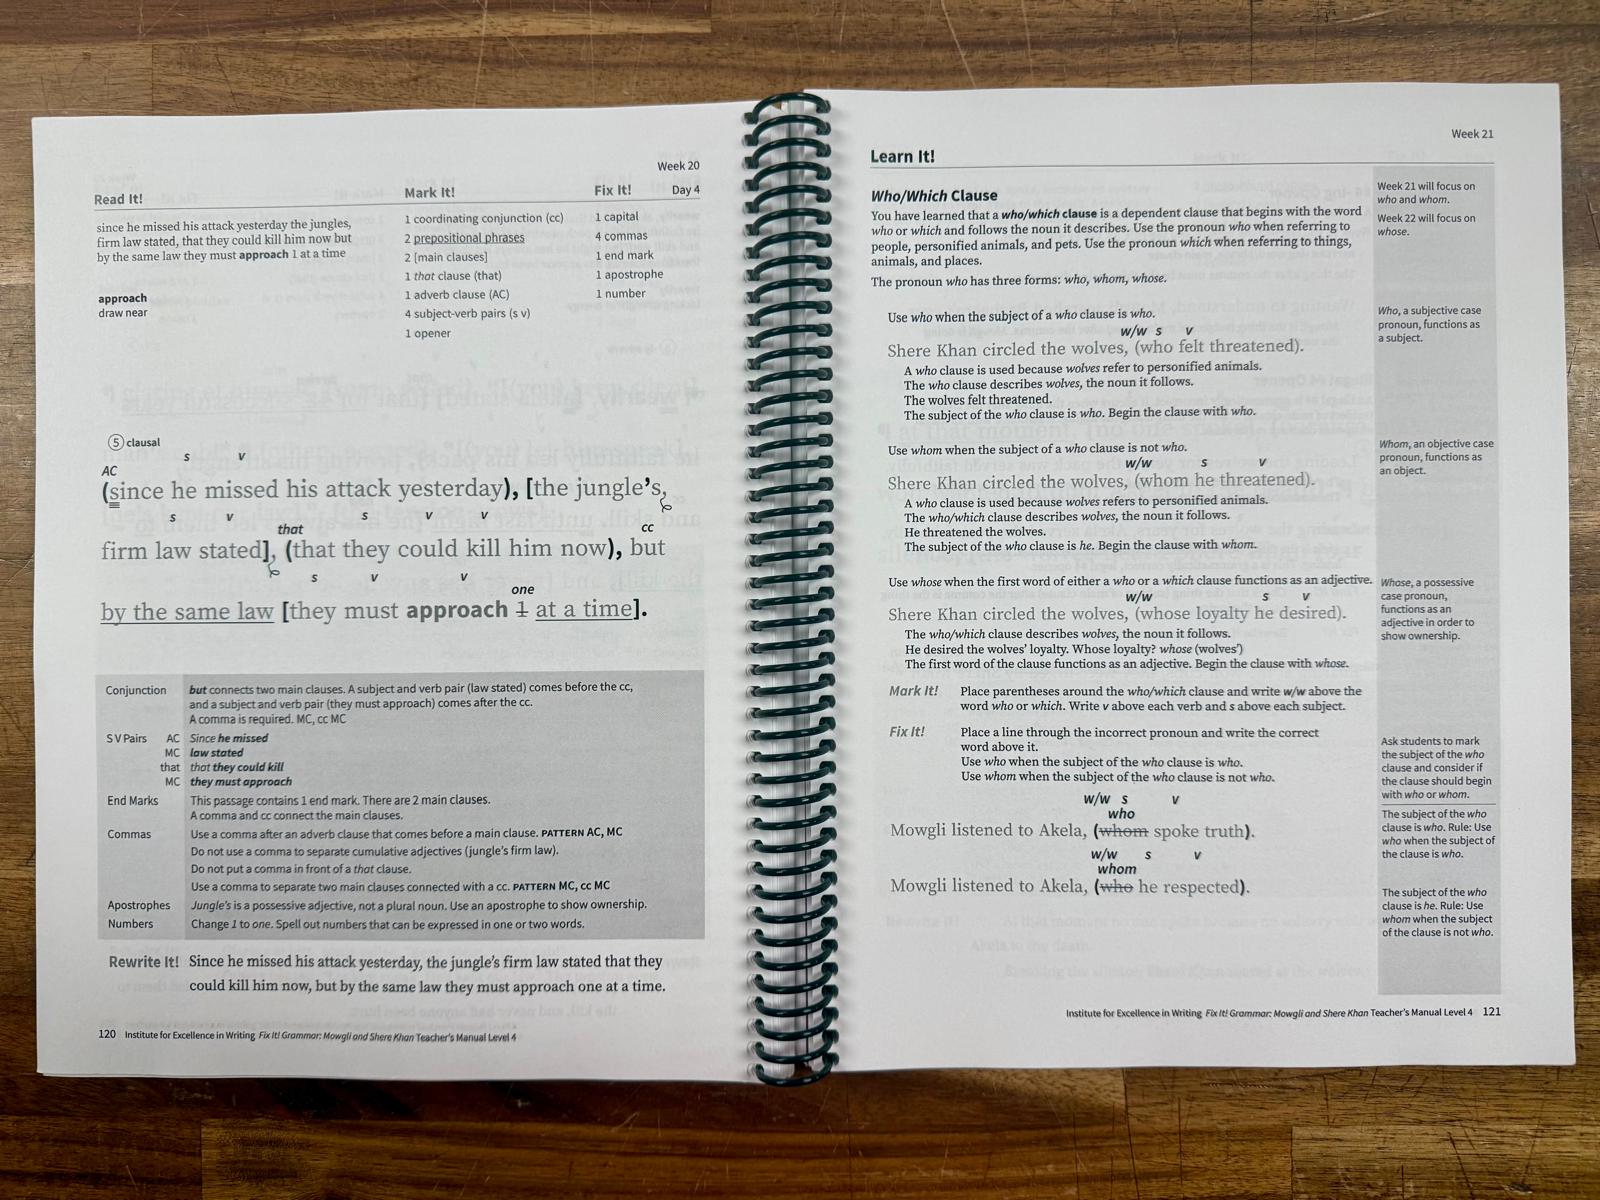 Week 20
Read It! Mark It! Fix It! Day 4
since he missed his attack yesterday the jungles,
firm law stated, that they could kill him now but
by the same law they must approach 1 at a time
approach
draw near
1 coordinating conjunction (cc)
2 prepositional phrases
2 [main clauses]
1 that clause (that)
1 adverb clause (AC)
4 subject-verb pairs (s v)
1 opener
1 capital
4 commas
1 end mark
1 apostrophe
1 number
5 clausal
s v
AC
(since he missed his attack yesterday), [the jungle's,
s v s v v
that cc
firm law stated], (that they could kill him now), but
s v v
one
by the same law [they must approach 1 at a time].
Conjunction but connects two main clauses. A subject and verb pair (law stated) comes before the cc,
and a subject and verb pair (they must approach) comes after the cc.
A comma is required. MC, cc MC
S V Pairs AC Since he missed
MC law stated
that that they could kill
MC they must approach
End Marks This passage contains 1 end mark. There are 2 main clauses.
A comma and cc connect the main clauses.
Commas Use a comma after an adverb clause that comes before a main clause. PATTERN AC, MC
Do not use a comma to separate cumulative adjectives (jungle's firm law).
Do not put a comma in front of a that clause.
Use a comma to separate two main clauses connected with a cc. PATTERN MC, cc MC
Apostrophes Jungle's is a possessive adjective, not a plural noun. Use an apostrophe to show ownership.
Numbers Change 1 to one. Spell out numbers that can be expressed in one or two words.
Rewrite It! Since he missed his attack yesterday, the jungle's firm law stated that they
could kill him now, but by the same law they must approach one at a time.
120 Institute for Excellence in Writing Fix It! Grammar: Mowgli and Shere Khan Teacher's Manual Level 4
Week 21
Learn It!
Who/Which Clause
You have learned that a who/which clause is a dependent clause that begins with the word
who or which and follows the noun it describes. Use the pronoun who when referring to
people, personified animals, and pets. Use the pronoun which when referring to things,
animals, and places.
The pronoun who has three forms: who, whom, whose.
Use who when the subject of a who clause is who.
w/w s v
Shere Khan circled the wolves, (who felt threatened).
A who clause is used because wolves refer to personified animals.
The who clause describes wolves, the noun it follows.
The wolves felt threatened.
The subject of the who clause is who. Begin the clause with who.
Use whom when the subject of a who clause is not who.
w/w s v
Shere Khan circled the wolves, (whom he threatened).
A who clause is used because wolves refers to personified animals.
The who/which clause describes wolves, the noun it follows.
He threatened the wolves.
The subject of the who clause is he. Begin the clause with whom.
Use whose when the first word of either a who or a which clause functions as an adjective.
w/w s v
Shere Khan circled the wolves, (whose loyalty he desired).
The who/which clause describes wolves, the noun it follows.
He desired the wolves' loyalty. Whose loyalty? whose (wolves')
The first word of the clause functions as an adjective. Begin the clause with whose.
Mark It! Place parentheses around the who/which clause and write w/w above the
word who or which. Write v above each verb and s above each subject.
Fix It! Place a line through the incorrect pronoun and write the correct
word above it.
Use who when the subject of the who clause is who.
Use whom when the subject of the who clause is not who.
w/w s v
who
Mowgli listened to Akela, (whom spoke truth).
w/w s v
whom
Mowgli listened to Akela, (who he respected).
Week 21 will focus on
who and whom.
Week 22 will focus on
whose.
Who, a subjective case
pronoun, functions as
a subject.
Whom, an objective case
pronoun, functions as
an object.
Whose, a possessive
case pronoun,
functions as an
adjective in order to
show ownership.
Ask students to mark
the subject of the who
clause and consider if
the clause should begin
with who or whom.
The subject of the who
clause is who. Rule: Use
who when the subject of
the clause is who.
The subject of the who
clause is he. Rule: Use
whom when the subject
of the clause is not who.
Institute for Excellence in Writing Fix It! Grammar: Mowgli and Shere Khan Teacher's Manual Level 4 121